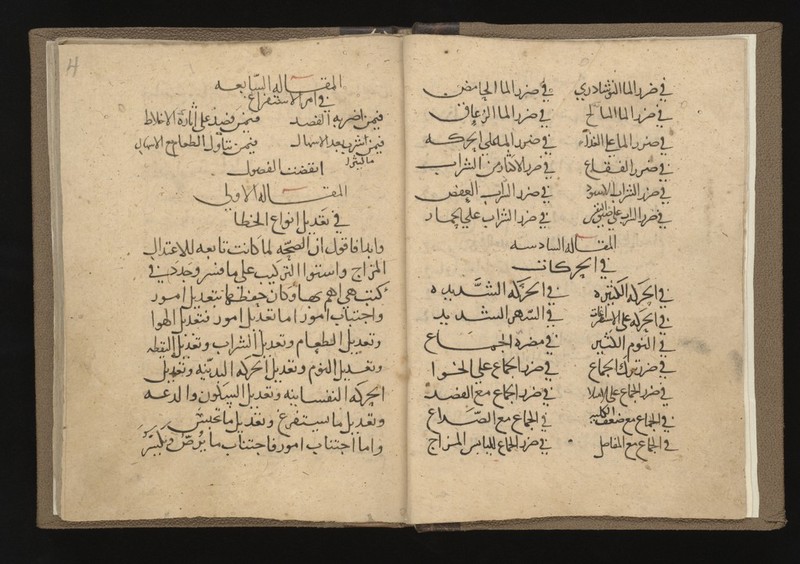 في ضرر الما النوشادري في ضرر الما الحامض
في ضرر الما المالح في ضرر الما الزعاق
في ضرر الما علي الغذاء في ضرر الما علي الحركه
في ضرر الفقاع في ضرر الاكثار من الشراب
في ضرر الشراب الاسود في ضرر الشراب العفص
في ضرر الشراب علي في ضرر الشراب علي
المقاله السادسه
في الحركات
في الحركه الكثيره في الحركه الشديده
في الحركه علي في السهر الشديد
في النوم الكثير في مضره الجماع
في ضرر ترك الجماع في ضرر الجماع علي الخوا
في ضرر الجماع علي الامتلا في ضرر الجماع مع الفصد
في الجماع مع ضعف الكلي في الجماع مع الصداع
في الجماع مع المفاصل في ضرر الجماع لليابس المزاج
4
المقاله السابعه
في امر الاستفراغ
فيمن اضر به الفصد فيمن فصد علي اثارة الاخلاط
فيمن شرب بعد الاسهال فيمن تناول الطعام مع الاسهال
انقضت الفصول
المقاله الاولي
في تعديل انواع الخطا
وابدا فاقول ان الصحه لما كانت تابعه للاعتدال
المزاج واستوا التركيب علي ما فسر وحدد في
كتب هي اهم بها وكان حفظها بتعديل امور
واجتناب امور اما تعديل امور فتعديل الهوا
وتعديل الطعام وتعديل الشراب وتعديل اليقظه
وتعديل النوم وتعديل الحركه البدنيه وتعديل
الحركه النفسانيه وتعديل السكون والدعه
وتعديل ما يستفرغ وتعديل ما يحتبس
واما اجتناب امور فاجتناب ما يرض ويكسر